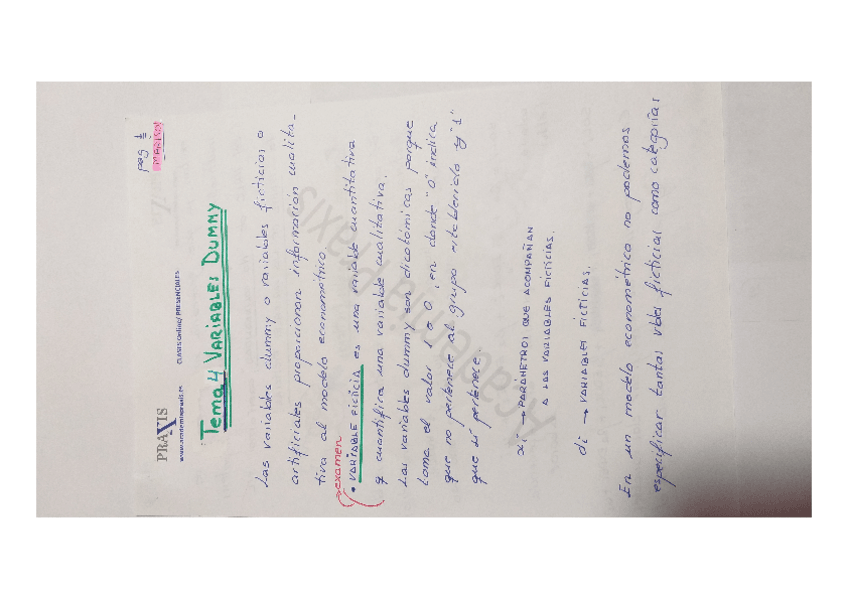 PRAXIS
www.academiapraxis.es
CLASES Online/PRESENCIALES
pag 1
Tema 4 VARIABLES DUMMY
Las variables dummy o variables ficticias o
artificiales proporcionan información cualita-
tiva al modelo econométrico
examen
• VARIABLE FICTICIA es una variable cuantitativa
q cuantifica una variable cualitativa.
Las variables dummy son dicotómicas porque
toma el valor 1 o 0, en donde "0" indica
que no pertenece al grupo establecido y "1"
que sí pertenece.
αi → PARÁMETROS QUE ACOMPAÑAN
A LAS VARIABLES FICTICIAS.
di → VARIABLES FICTICIAS.
En un modelo econométrico no podemos
especificar tantas vbles ficticias como categorías
Academia Praxis